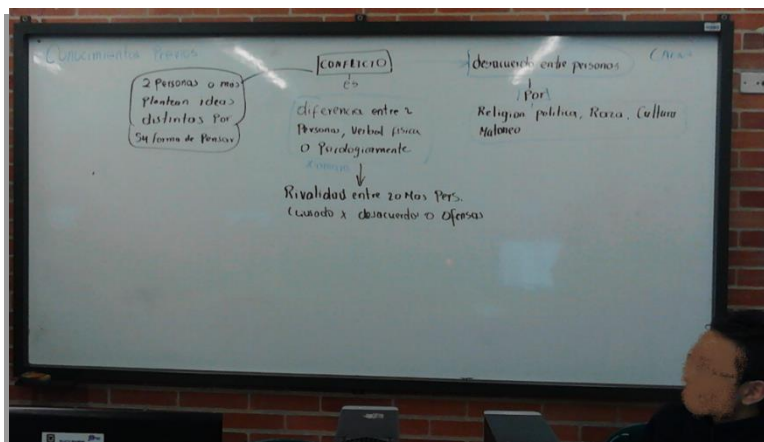 Conocimientos Previos
CONFLICTO
es
2 Personas o mas
Plantean ideas
distintas Por
su forma de Pensar
diferencia entre 2
Personas, Verbal fisica
o Psicologicamente
Rivalidad entre 2 o Mas Pers.
Causado x desacuerdos o Ofensas
desacuerdo entre personas
Por
Religion politica, Raza, Cultura
Matoneo